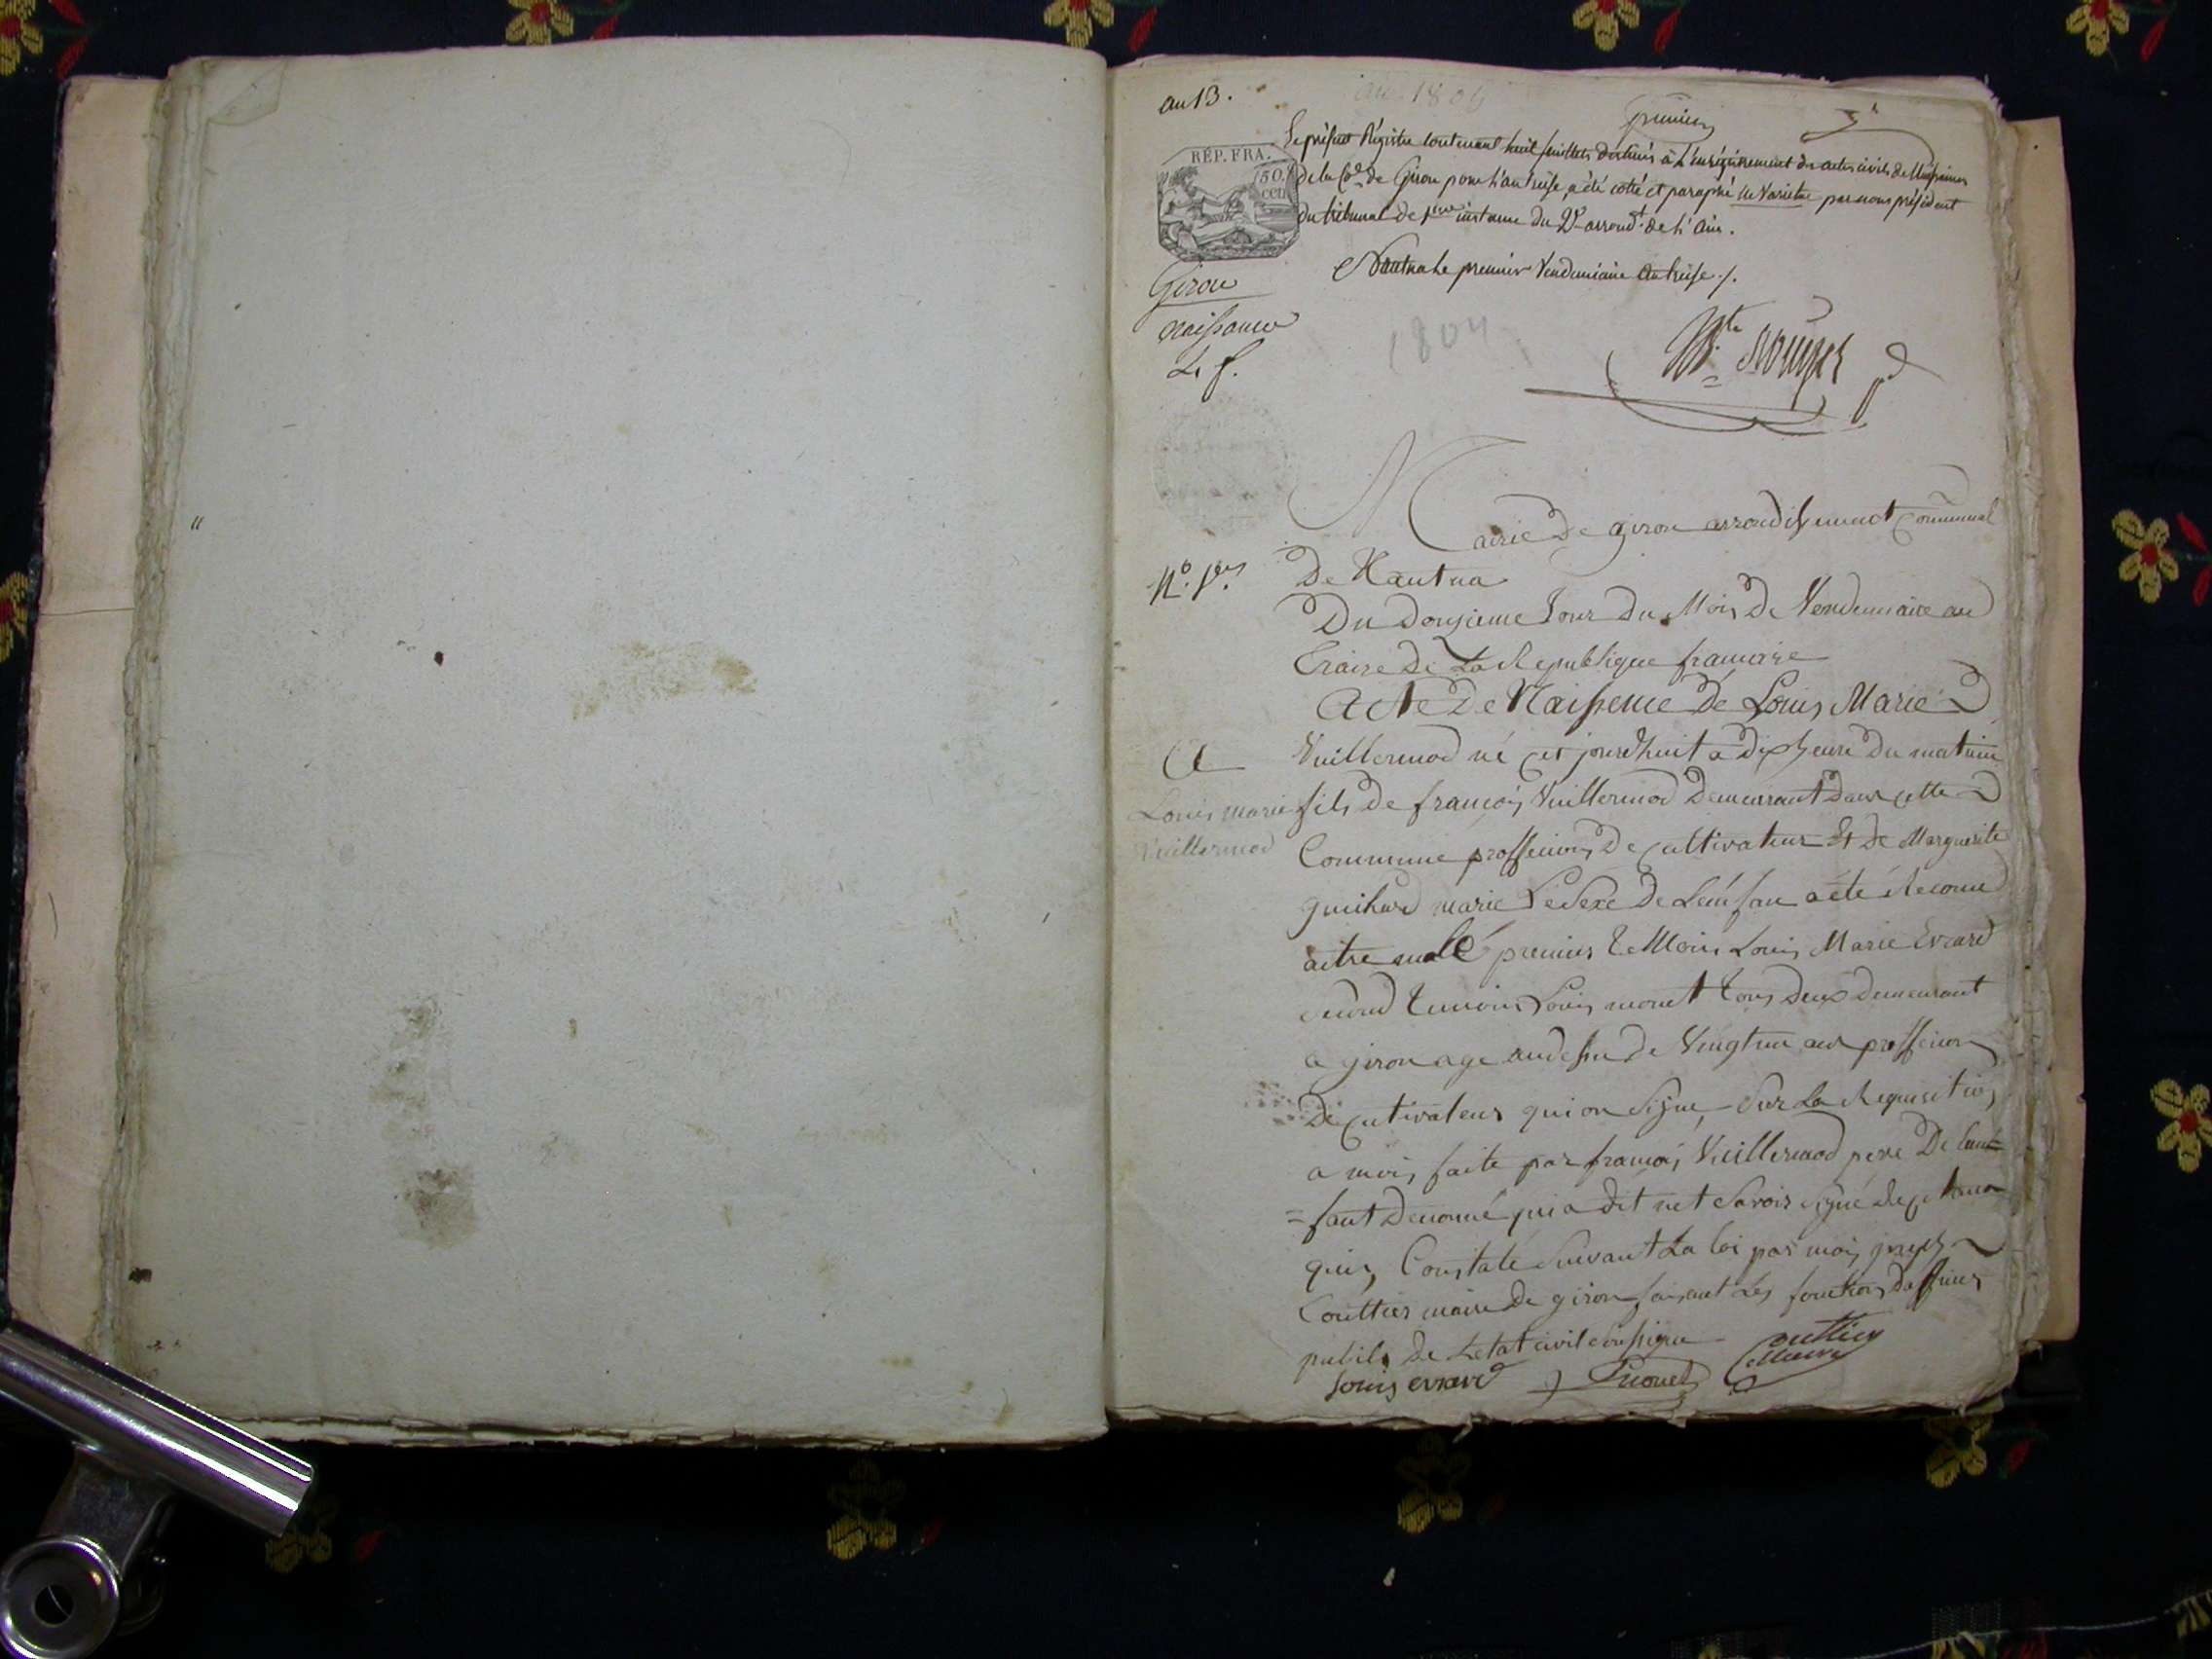 an 13.
an 1804
premier
Le présent Régistre contenant huit feuillets destinés à L'enrégistrement des actes civils de Naissances
RÉP. FRA.
50.
cen
de la Cne de Giron pour l'an treise, a été cotté et paraphé Ne Varietur par nous président
du tribunal de 1ere instance du 2e arrondt. de L'Ain.
Nantua le premier Vendemiaire an treise ./.
Giron
naissance
1804
Mairie de giron arrondissement Communal
No. 1er
De Nantua
Du Douzieme Jour Du Mois De Vendemiaire an
Traize De La Republique francaize
Acte De Naissence De Louis Marie
Vuillermod né cet jourdhuit a dix heure Du matin
Louis marie
fils De francois Vuillermod Demeurant dans cette
Vuillermod
Commune proffecion De cultivateur Et De Marguerite
marie Le Sexe De Lenfan a été Reconu
aitre malle premier teMoins Louis Marie Evrard
Second temoins Louis monet tous Deux demeurant
a giron age audessu de Vingtun ans proffecion
De cutivateur qui on Signe, Sur La Requisition
a mois faite par francois Vuillermod pere De Lant
=fant Denomé qui a dit net Savoir signé
Constaté Suivant La loi par mois
Couttier maire De giron faisant Les fonctions
public De Letat civil Soussigne
Louis evrard
L monet
Couttier
Maire